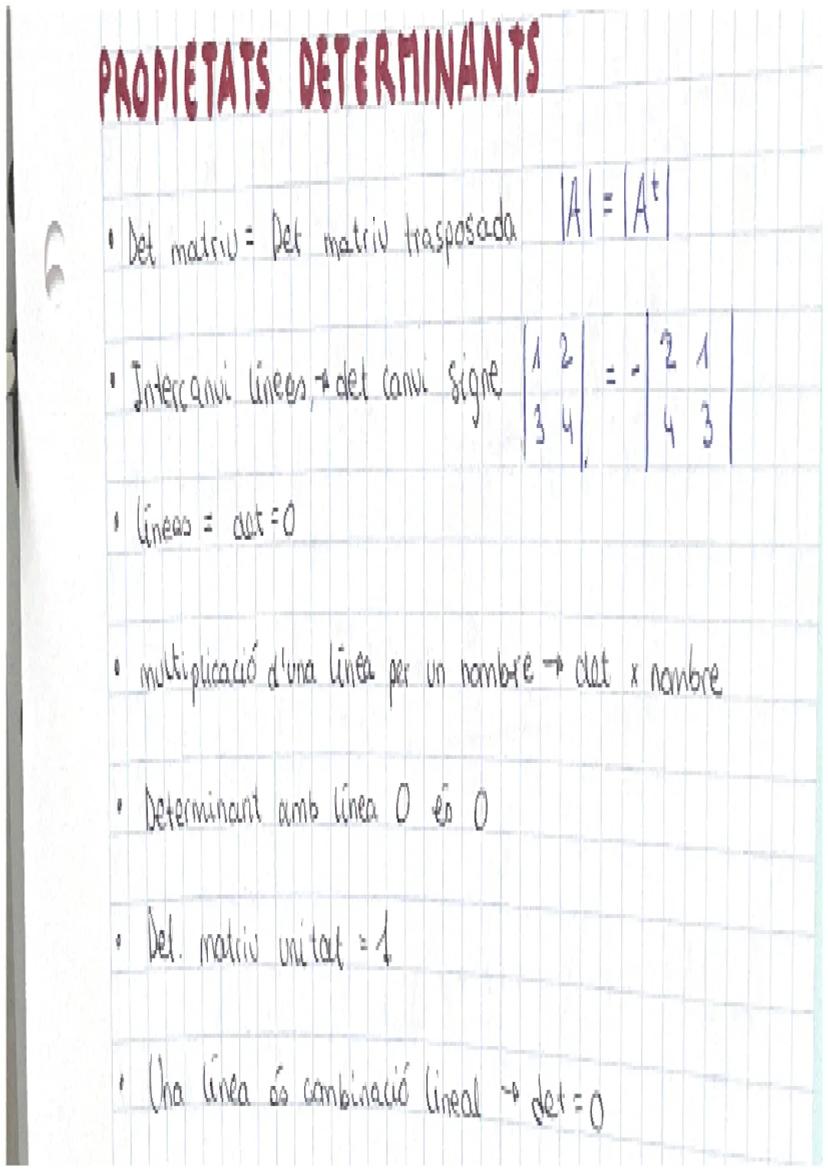 PROPIETATS DETERMINANTS
• Det matriu = Det matriu trasposada |A| = |Aᵗ|
• Intercanvi línees, → det canvi signe |1 2| = - |2 1|
|3 4| |4 3|
• línees = det = 0
• multiplicació d'una línea per un nombre → det x nombre
• Determinant amb línea 0 és 0
• Det. matriu unitat = 1
• Una línea és combinació lineal → det = 0